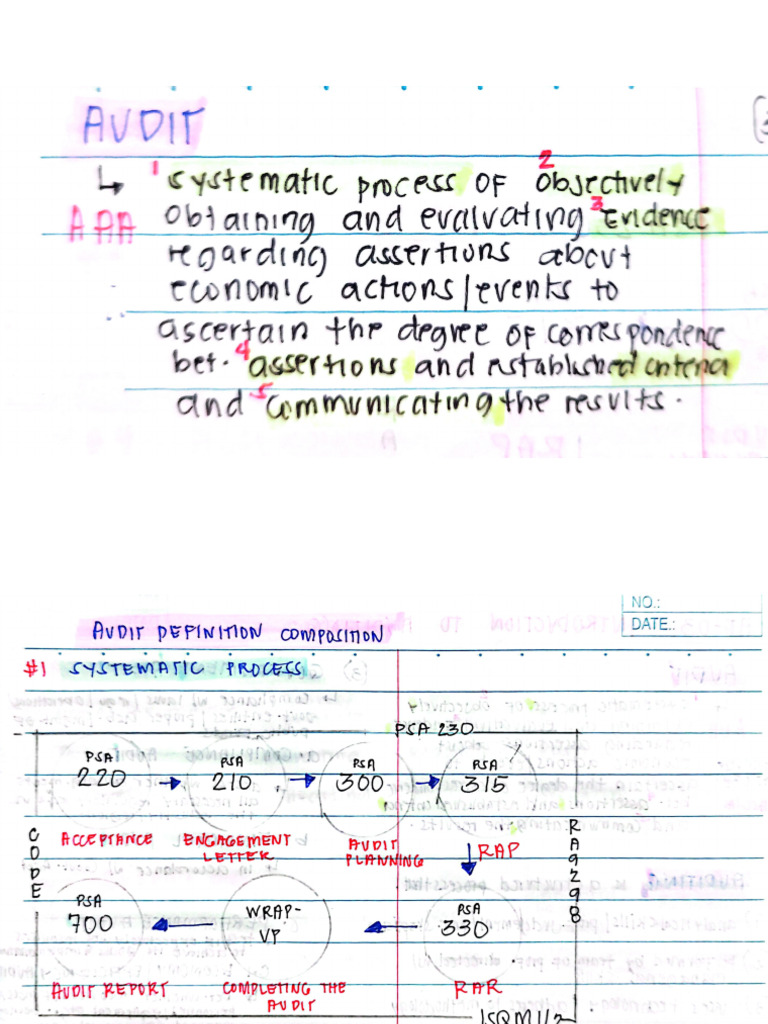 AUDIT
↳ 1 systematic process of 2 objectively
AAA obtaining and evaluating 3 evidence
regarding assertions about
economic actions/events to
ascertain the degree of correspondence
bet. 4 assertions and established criteria
and 5 communicating the results.
NO.:
DATE.:
AUDIT DEFINITION COMPOSITION
#1 SYSTEMATIC PROCESS
PSA 230
PSA 220 → PSA 210 → PSA 300 → PSA 315
ACCEPTANCE ENGAGEMENT LETTER AUDIT PLANNING ↓ RAP
CODE
RA9298
PSA 700 ← WRAP-UP ← PSA 330
AUDIT REPORT COMPLETING THE AUDIT RAR